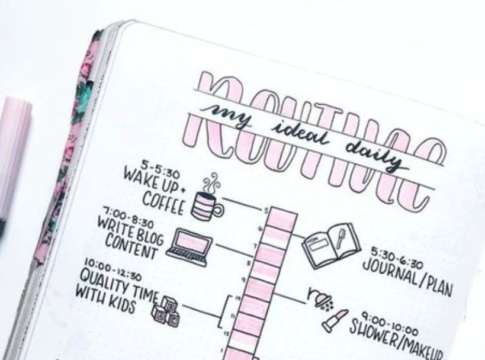 ROUTINE
my ideal daily
5-5:30
WAKE UP +
COFFEE
7:00-8:30
WRITE BLOG
CONTENT
10:00-12:30
QUALITY TIME
WITH KIDS
5:30-6:30
JOURNAL/PLAN
9:00-10:00
SHOWER/MAKEUP